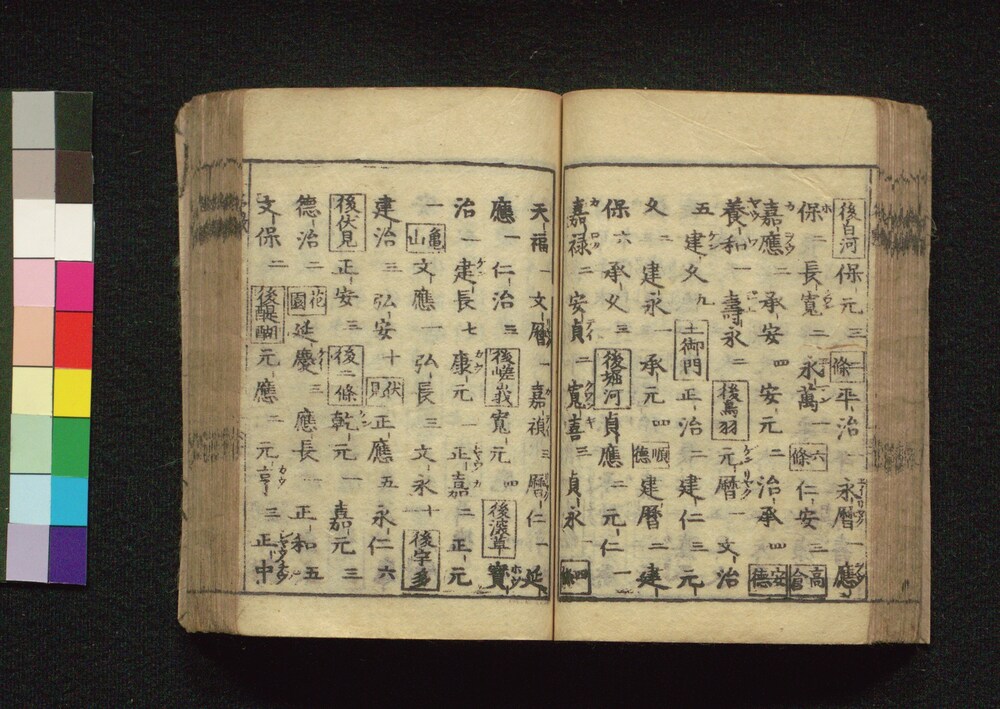 後白河 保元三 二條 平治一 永暦一 應
保二 長寛二 永萬一 六條 仁安三 高倉
嘉應二 承安四 安元二 治承四 安德
養和一 壽永二 後鳥羽 元暦一 文治
五 建久九 土御門 正治二 建仁三 元
久二 建永一 承元四 順德 建暦二 建
保六 承久三 後堀河 貞應二 元仁一
嘉禄二 安貞二 寛喜三 貞永一 四條
天福一 文暦一 嘉禎三 暦仁一 延
應一 仁治三 後嵯峩 寛元四 後深草 寳
治一 建長七 康元一 正嘉二 正元
一 亀山 文應一 弘長三 文永十 後宇多
建治三 弘安十 伏見 正應五 永仁六
後伏見 正安三 後二條 乾元一 嘉元三
德治二 花園 延慶三 應長一 正和五
文保二 後醍醐 元應二 元亨三 正中